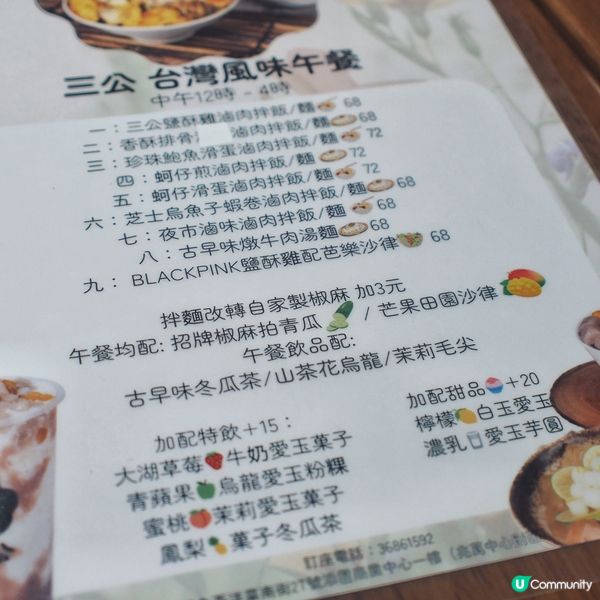 三公 台灣風味午餐
中午12時 - 4時
一：三公鹽酥雞滷肉拌飯/麵 68
二：香酥排骨 滷肉拌飯/麵 68
三：珍珠鮑魚滑蛋滷肉拌飯/麵 72
四：蚵仔煎滷肉拌飯/麵 72
五：蚵仔滑蛋滷肉拌飯/麵 72
六：芝士烏魚子蝦卷滷肉拌飯/麵 68
七：夜市滷味滷肉拌飯/麵 68
八：古早味燉牛肉湯麵 68
九： BLACKPINK鹽酥雞配芭樂沙律 68
拌麵改轉自家製椒麻 加3元
午餐均配: 招牌椒麻拍青瓜 / 芒果田園沙律
午餐飲品配:
古早味冬瓜茶/山茶花烏龍/茉莉毛尖
加配特飲＋15：
大湖草莓牛奶愛玉菓子
青蘋果烏龍愛玉粉粿
蜜桃茉莉愛玉菓子
鳳梨菓子冬瓜茶
加配甜品＋20
檸檬白玉愛玉
濃乳愛玉芋圓
訂座電話：36861592
洋菜南街2T號添匯商業中心一樓
U Community